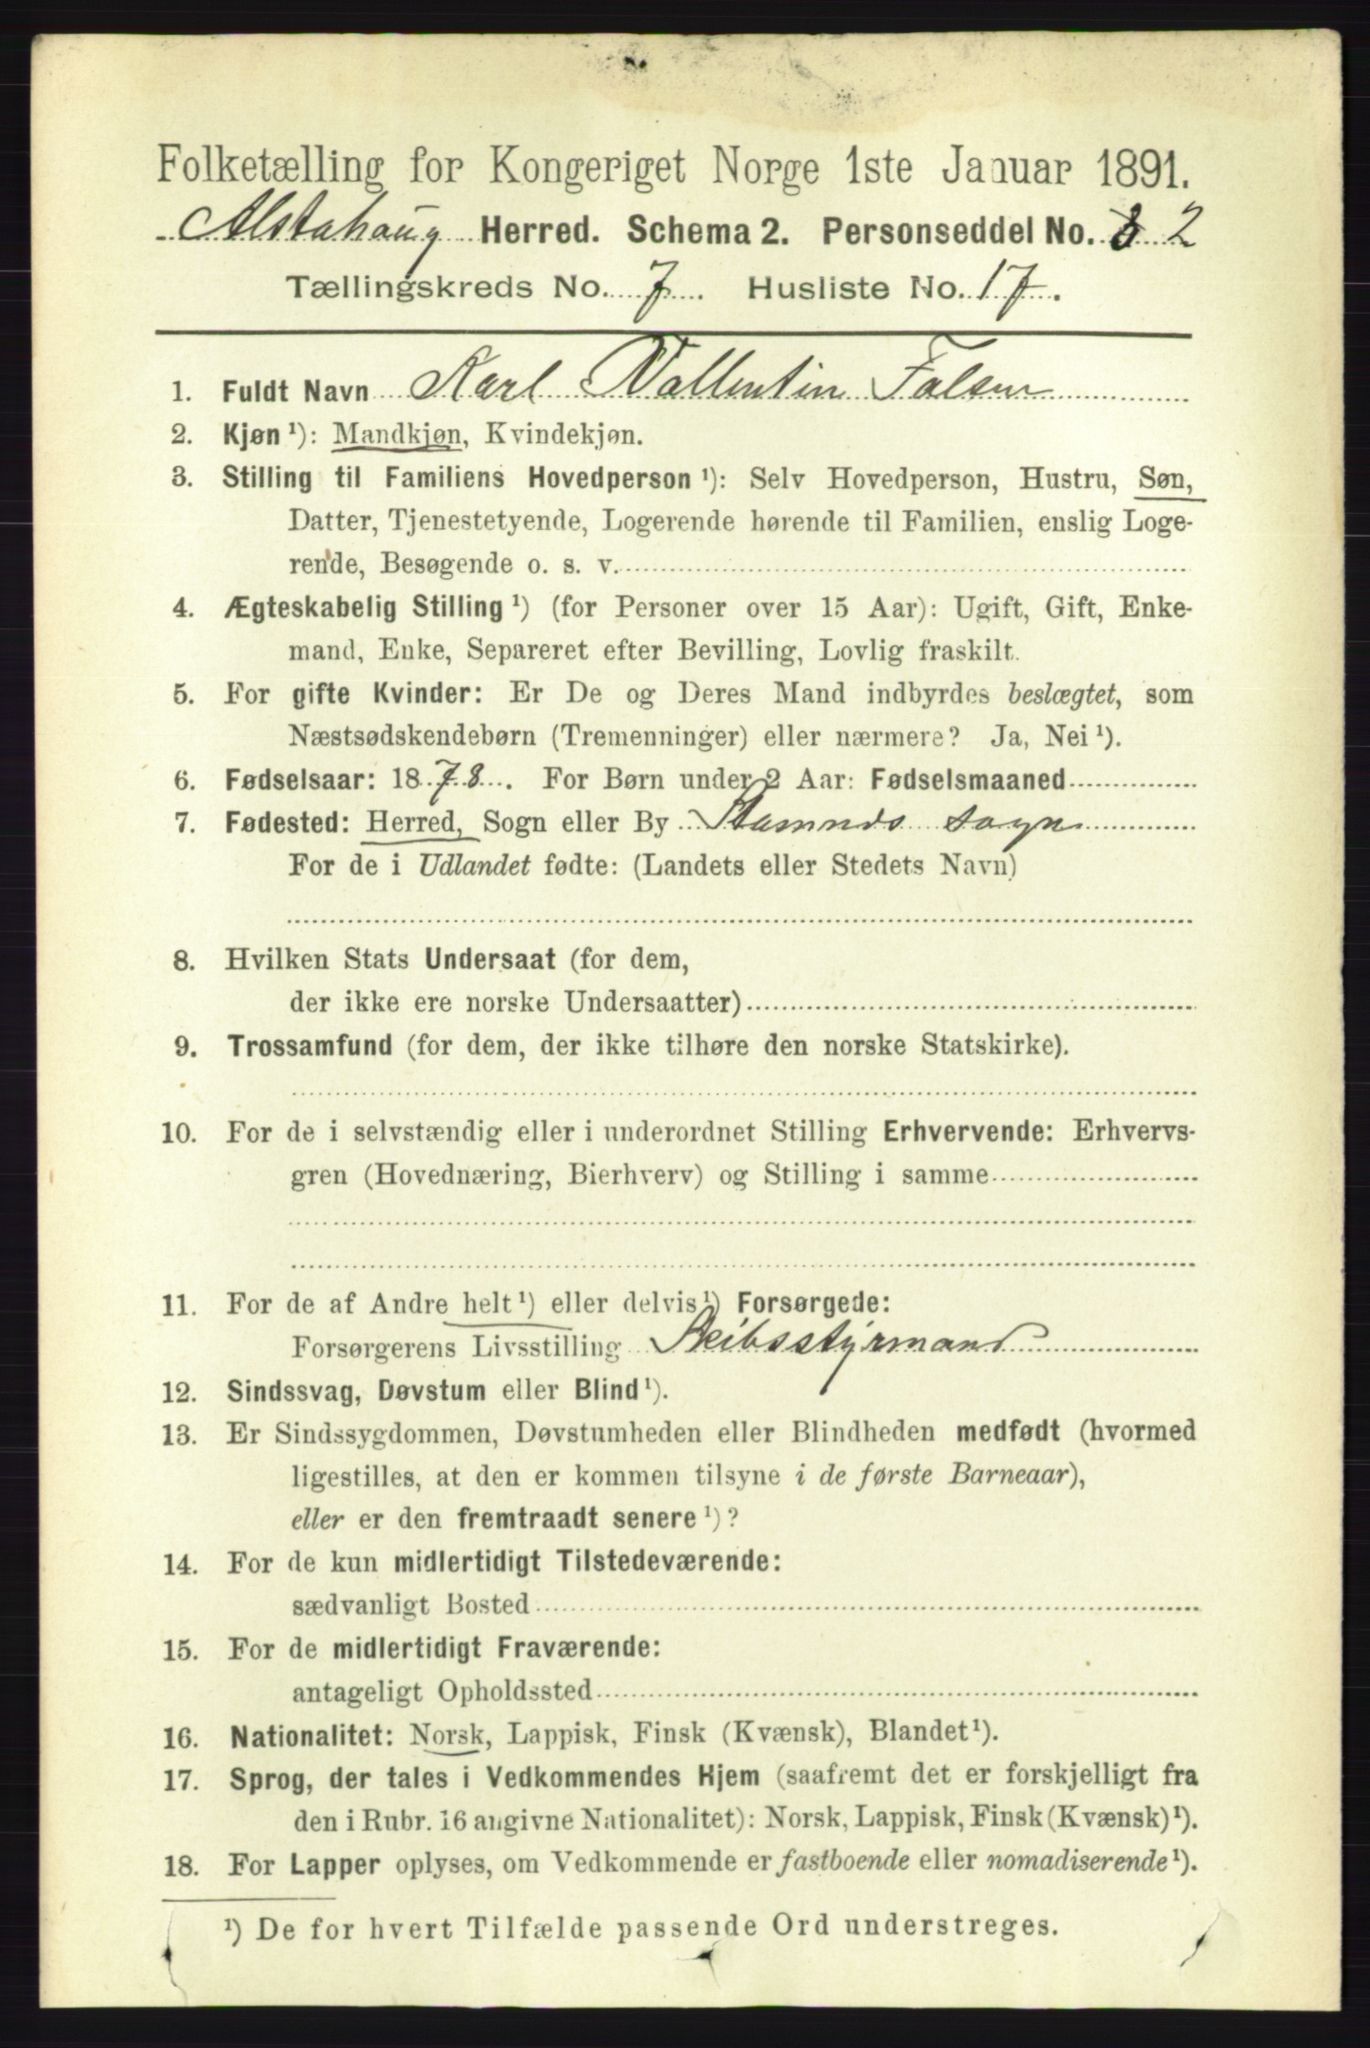 Folketælling for Kongeriget Norge 1ste Januar 1891.
Alstahaug Herred. Schema 2. Personseddel No. 2
Tællingskreds No. 7. Husliste No. 17.
1. Fuldt Navn Karl Vallentin Falsen
2. Kjøn ¹): Mandkjøn, Kvindekjøn.
3. Stilling til Familiens Hovedperson ¹): Selv Hovedperson, Hustru, Søn,
Datter, Tjenestetyende, Logerende hørende til Familien, enslig Loge-
rende, Besøgende o. s. v.
4. Ægteskabelig Stilling ¹) (for Personer over 15 Aar): Ugift, Gift, Enke-
mand, Enke, Separeret efter Bevilling, Lovlig fraskilt.
5. For gifte Kvinder: Er De og Deres Mand indbyrdes beslægtet, som
Næstsødskendebørn (Tremenninger) eller nærmere? Ja, Nei ¹).
6. Fødselsaar: 1878. For Børn under 2 Aar: Fødselsmaaned
7. Fødested: Herred, Sogn eller By Stamnes sogn
For de i Udlandet fødte: (Landets eller Stedets Navn)
8. Hvilken Stats Undersaat (for dem,
der ikke ere norske Undersaatter)
9. Trossamfund (for dem, der ikke tilhøre den norske Statskirke).
10. For de i selvstændig eller i underordnet Stilling Erhvervende: Erhvervs-
gren (Hovednæring, Bierhverv) og Stilling i samme
11. For de af Andre helt ¹) eller delvis ¹) Forsørgede:
Forsørgerens Livsstilling Skibsstyrmand
12. Sindssvag, Døvstum eller Blind ¹).
13. Er Sindssygdommen, Døvstumheden eller Blindheden medfødt (hvormed
ligestilles, at den er kommen tilsyne i de første Barneaar),
eller er den fremtraadt senere ¹)?
14. For de kun midlertidigt Tilstedeværende:
sædvanligt Bosted
15. For de midlertidigt Fraværende:
antageligt Opholdssted
16. Nationalitet: Norsk, Lappisk, Finsk (Kvænsk), Blandet ¹).
17. Sprog, der tales i Vedkommendes Hjem (saafremt det er forskjelligt fra
den i Rubr. 16 angivne Nationalitet): Norsk, Lappisk, Finsk (Kvænsk) ¹).
18. For Lapper oplyses, om Vedkommende er fastboende eller nomadiserende ¹).
¹) De for hvert Tilfælde passende Ord understreges.